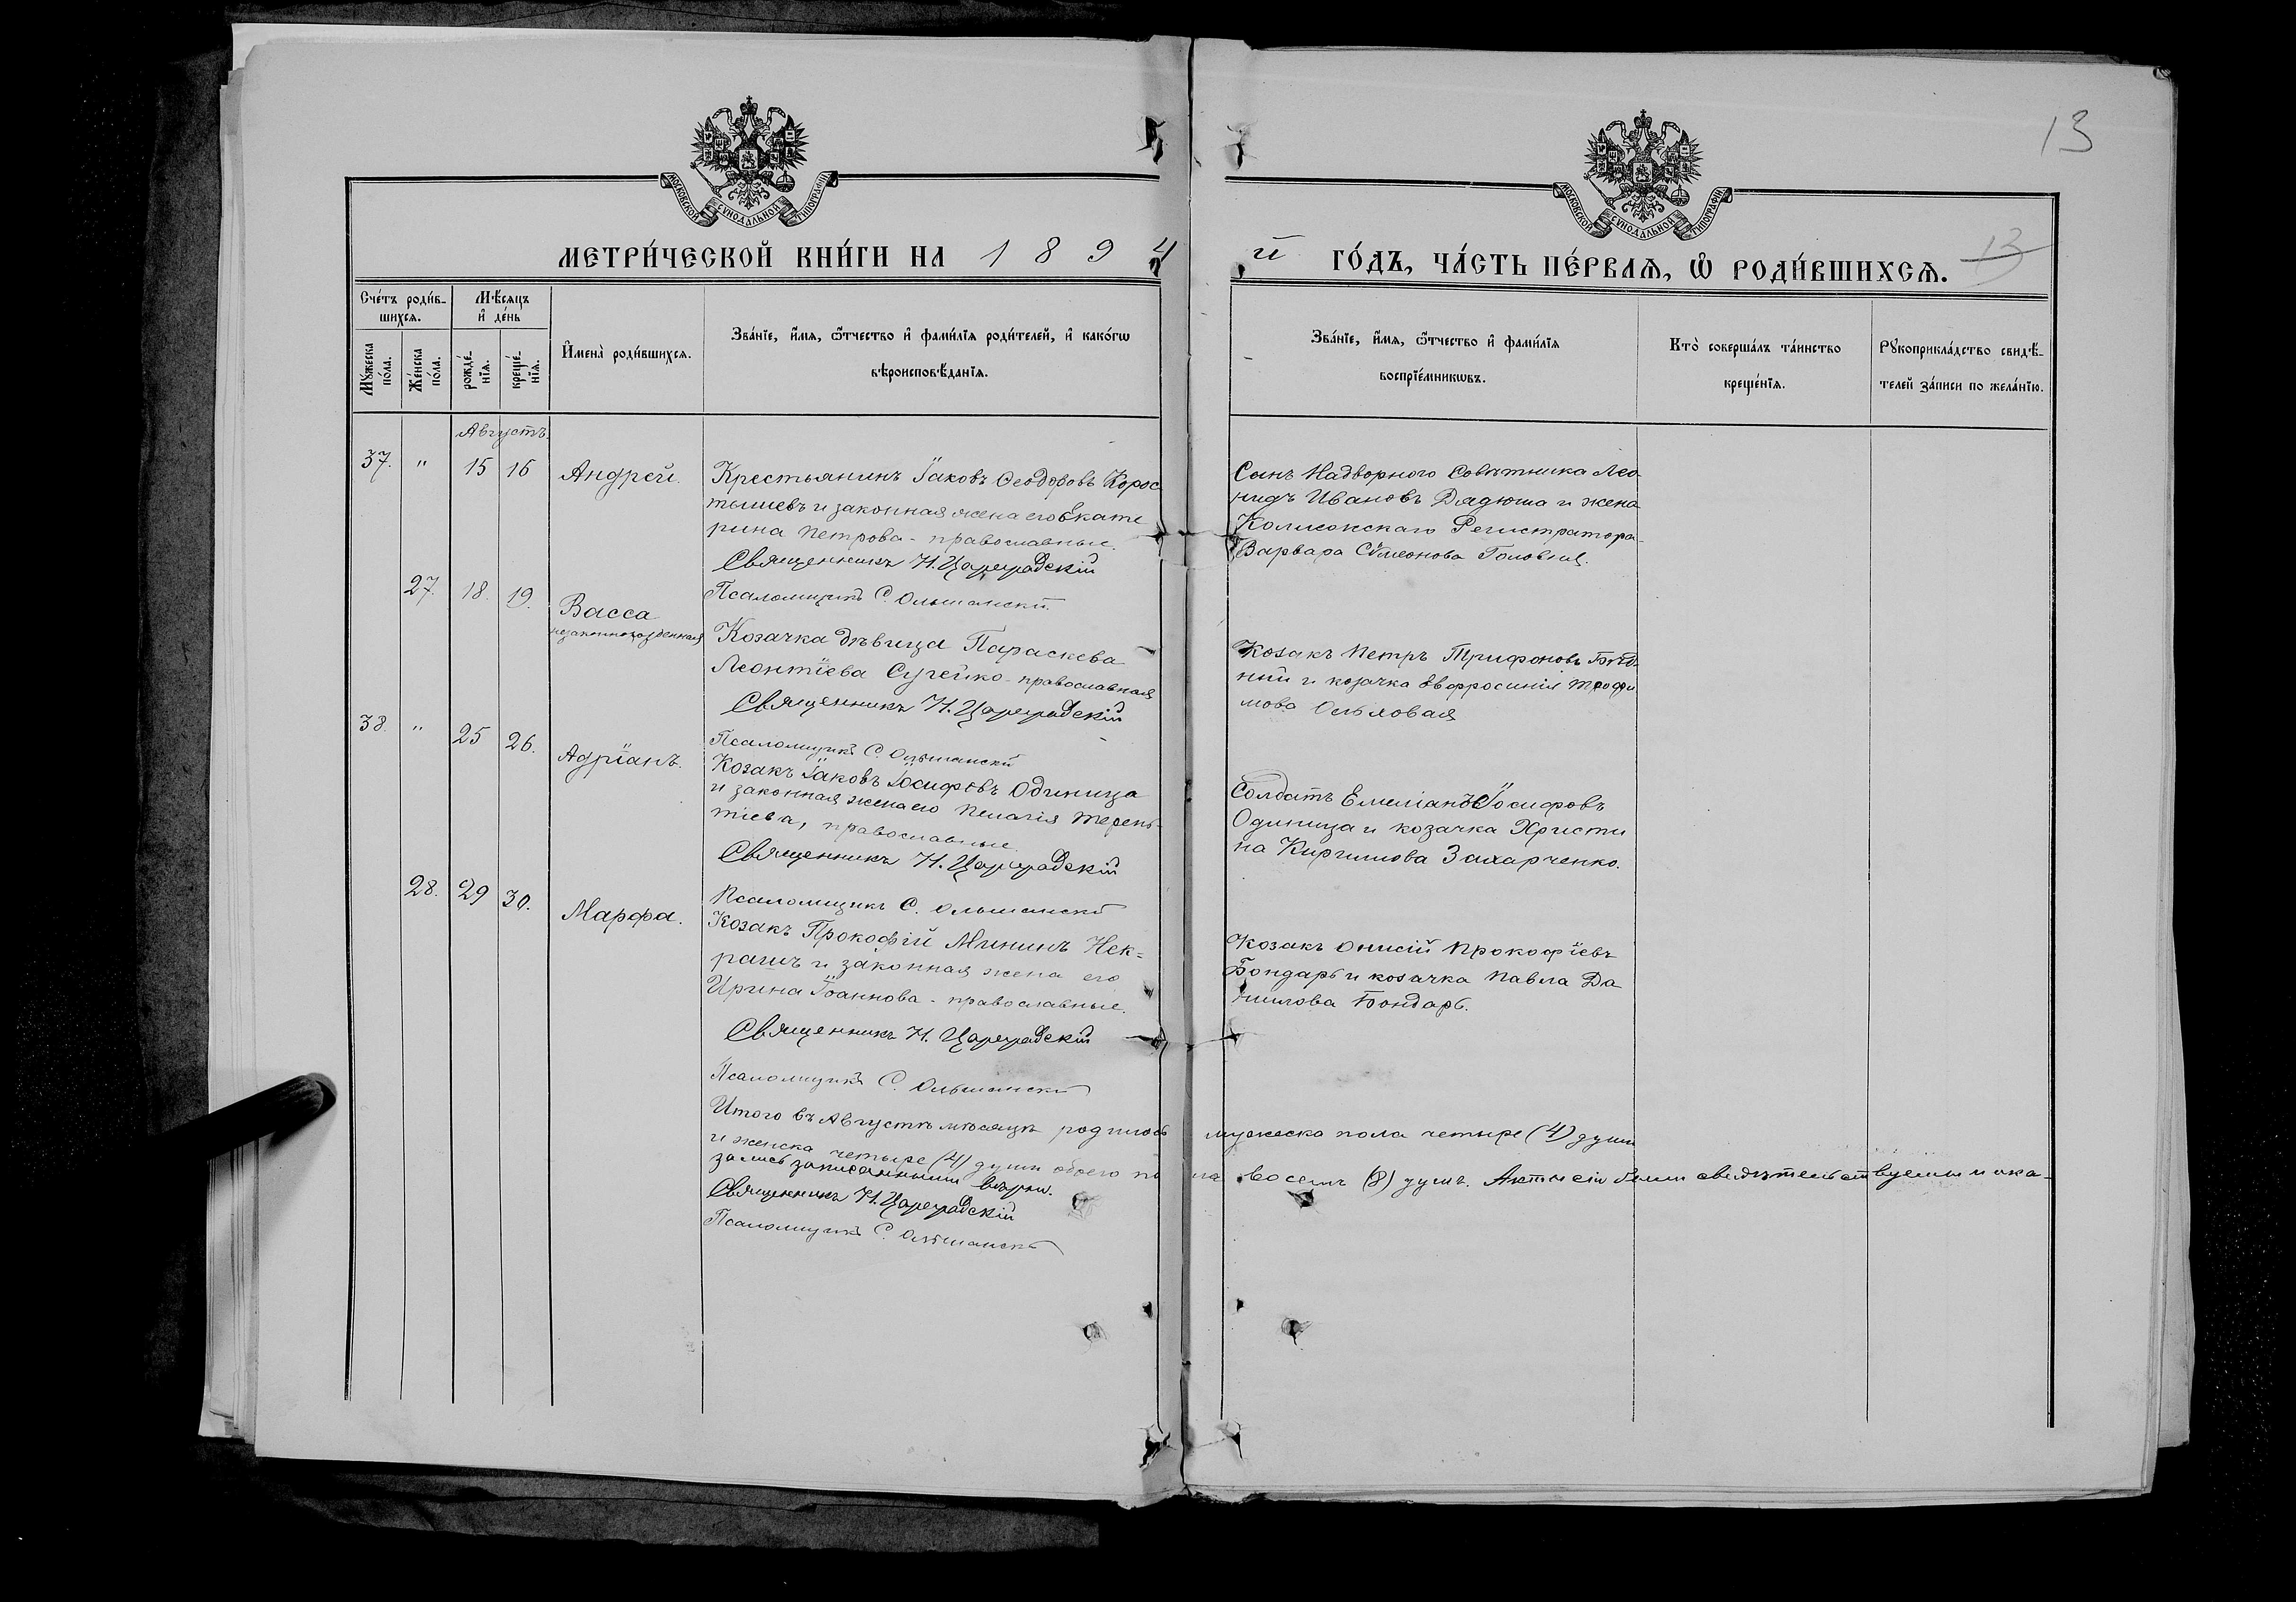 13
МОСКОВСКОЙ СѴНОДАЛЬНОЙ ТИПОГРАФІИ
МОСКОВСКОЙ СѴНОДАЛЬНОЙ ТИПОГРАФІИ
МЕТРИ́ЧЕСКОЙ КНИ́ГИ НА 1894
й ГО́ДЪ, ЧА́СТЬ ПЕ́РВАѦ, Ѽ РОДИ́ВШИХСѦ. 13
Сче́тъ роди́в-
шихсѧ.
Мѣ́сѧцъ
и҆ де́нь
Мꙋ́жеска
по́ла.
Же́нска
по́ла.
рожде́-
нїѧ.
креще́-
нїѧ.
И҆мена̀ роди́вшихсѧ.
Зва́нїе, и҆́мѧ, ѻ҆́тчество и҆ фами́лїѧ роди́телей, и҆ како́гѡ
вѣроисповѣ́данїѧ.
Зва́нїе, и҆́мѧ, ѻ҆́тчество и҆ фами́лїѧ
воспрїе́мникѡвъ.
Кто̀ соверша́лъ та́инство
креще́нїѧ.
Рꙋкоприкла́дство свидѣ́-
телей за́писи по жела́нїю.
Августъ.
37. " 15 16 Андрей.
Крестьянинъ Іаковъ Ѳеодоровъ Корос
тышевъ и законная жена его Екате
рина Петрова - православные.
Священникъ Н. Цареградскій
Псаломщикъ С. Ольшанскій
Сынъ Надворнаго Совѣтника Лео
нидъ Ивановъ Дядюша и жена
Колежскаго Регистратора
Варвара Сѵмеонова Головня.
27. 18. 19. Васса
незаконнорожденная
Козачка дѣвица Параскева
Леонтіева Сугейко - православная
Священникъ Н. Цареградскій
Псаломщикъ С. Ольшанскій
Козакъ Петръ Трифоновъ Бѣд-
ный и козачка Евфросинія Трофи
мова
38. " 25 26. Адріанъ.
Козакъ Іаковъ Іосифовъ Одиница
и законная жена его Пелагія Терен-
тіева, православные.
Священникъ Н. Цареградскій
Псаломщикъ С. Ольшанскій
Солдатъ Емеліанъ Іосифовъ
Одиница и козачка Христи
на Кириллова Захарченко.
28. 29 30. Марфа.
Козакъ Прокофій Мининъ Нек-
рашъ и законная жена его
Ирина Іоаннова - православные.
Священникъ Н. Цареградскій
Псаломщикъ С. Ольшанскій
Козакъ Онисій Прокофіевъ
Бондарь и козачка Павла Да
ниилова Бондарь.
Итого въ Августѣ мѣсяцѣ родилось мужеска пола четыре (4) души
и женска четыре (4) души обоего пола восемь (8) душъ. Акты сіи были свидѣтельствуемы и ока-
зались записанными вѣрно.
Священникъ Н. Цареградскій
Псаломщикъ С. Ольшанскій